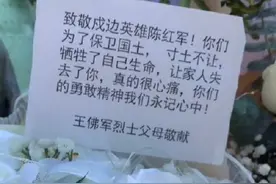 致敬戍边英雄陈红军！你们
为了保卫国土，寸土不让，
牺牲了自己生命，让家人失
去了你，真的很心痛，你们
的勇敢精神我们永记心中！
王佛军烈士父母敬献